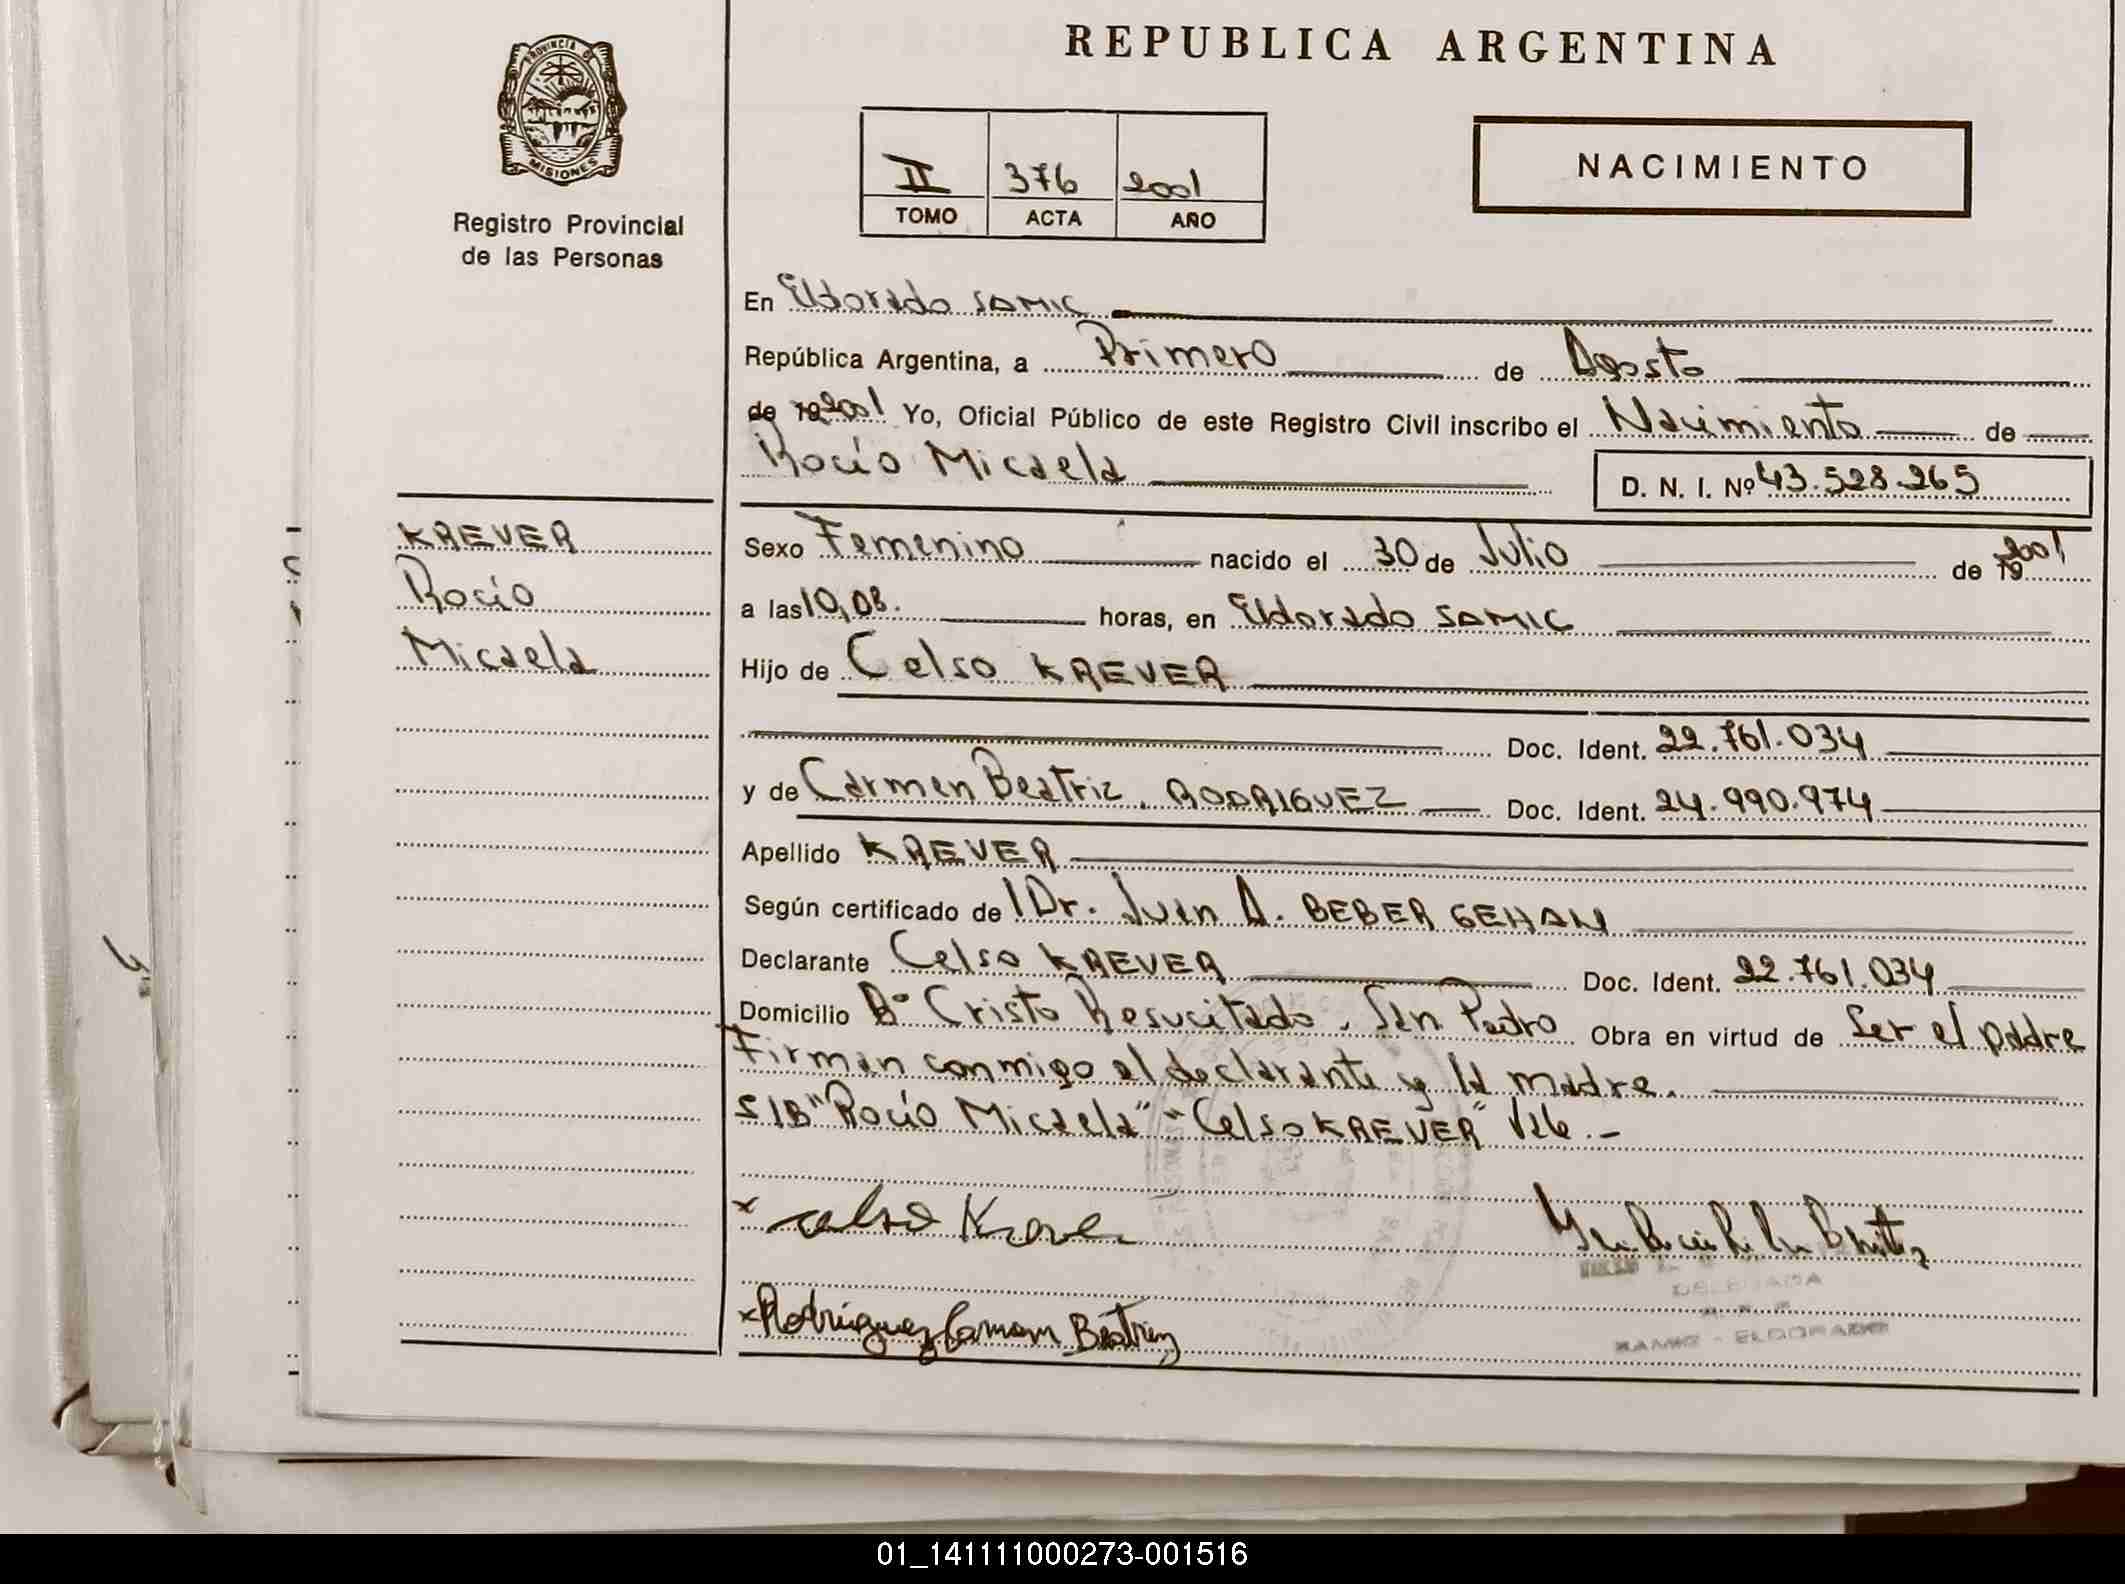 REPUBLICA ARGENTINA
PROVINCIA DE
MISIONES
Registro Provincial
de las Personas
II 376 2001
TOMO ACTA AÑO
NACIMIENTO
En Eldorado SAMIC
República Argentina, a Primero de Agosto
de 19 2001 Yo, Oficial Público de este Registro Civil inscribo el Nacimiento de
Rocío Micaela D. N. I. Nº 43.528.265
KREVER
Rocío
Micaela
Sexo Femenino nacido el 30 de Julio de 19 2001
a las 10,08. horas, en Eldorado SAMIC
Hijo de Celso KREVER
Doc. Ident. 22.761.034
y de Carmen Beatriz. RODRIGUEZ Doc. Ident. 24.990.974
Apellido KREVER
Según certificado de l Dr. Juan A. BEBER GEHAN
Declarante Celso KREVER Doc. Ident. 22.761.034
Domicilio Bº Cristo Resucitado. San Pedro Obra en virtud de Ser el padre
Firman conmigo el declarante y la madre.
S/B "Rocío Micaela" "Celso KREVER" Vale.-
x celso Krever
x Rodriguez Carmen Beatriz
DELEGADA
SAMIC - ELDORADO
01_141111000273-001516